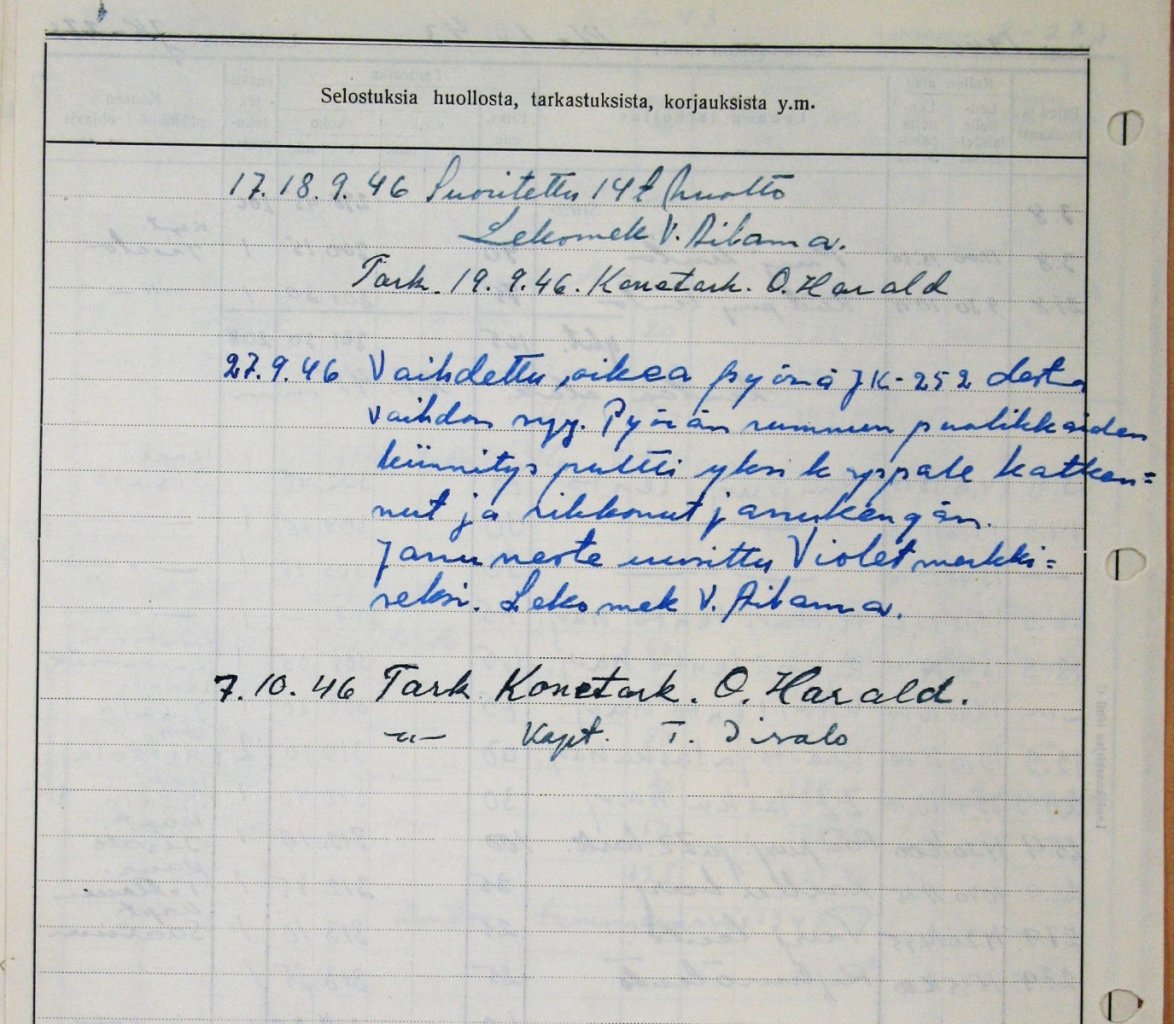 Selostuksia huollosta, tarkastuksista, korjauksista y.m.
17.18.9.46 Suoritettu 14t huolto
Lekomek V. Ailama.
Tark. 19.9.46. Konetark. O. Harald
27.9.46 Vaihdettu, oikea pyörä JK-252 desta
vaihdon syy. Pyörän rummun puolikkaiden
kiinnitys pultti yksi kappale katken=
nut ja rikkonut jarrukengän.
Jarru neste uusittu Violet merkki=
seksi. Lekomek V. Ailama.
7.10.46 Tark Konetark. O. Harald.
-"- Kapt. T.